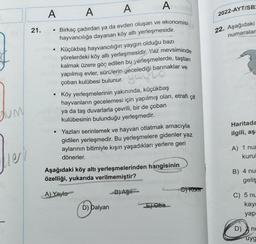 A A A A
21. • Birkaç çadırdan ya da evden oluşan ve ekonomisi
hayvancılığa dayanan köy altı yerleşmesidir.
• Küçükbaş hayvancılığın yaygın olduğu bazı
yörelerdeki köy altı yerleşmesidir. Yaz mevsiminde
kalmak üzere göç edilen bu yerleşmelerde, taştan
yapılmış evler, sürülerin gecelediği barınaklar ve
çoban kulübesi bulunur.
• Köy yerleşmelerinin yakınında, küçükbaş
hayvanların gecelemesi için yapılmış olan, etrafı çit
ya da taş duvarlarla çevrili, bir de çoban
kulübesinin bulunduğu yerleşmedir.
• Yazları serinlemek ve hayvan otlatmak amacıyla
gidilen yerleşmedir. Bu yerleşmelere gidenler yaz
aylarının bitimiyle kışın yaşadıkları yerlere geri
dönerler.
Aşağıdaki köy altı yerleşmelerinden hangisinin
özelliği, yukarıda verilmemiştir?
A) Yayla B) Ağıl C) Kom
D) Dalyan E) Oba
2022-AYT/SB
22. Aşağıdaki
numaralar
Haritada
ilgili, aş
A) 1 nu
kurul
B) 4 nu
geliş
C) 5 nu
kayı
yap
D)